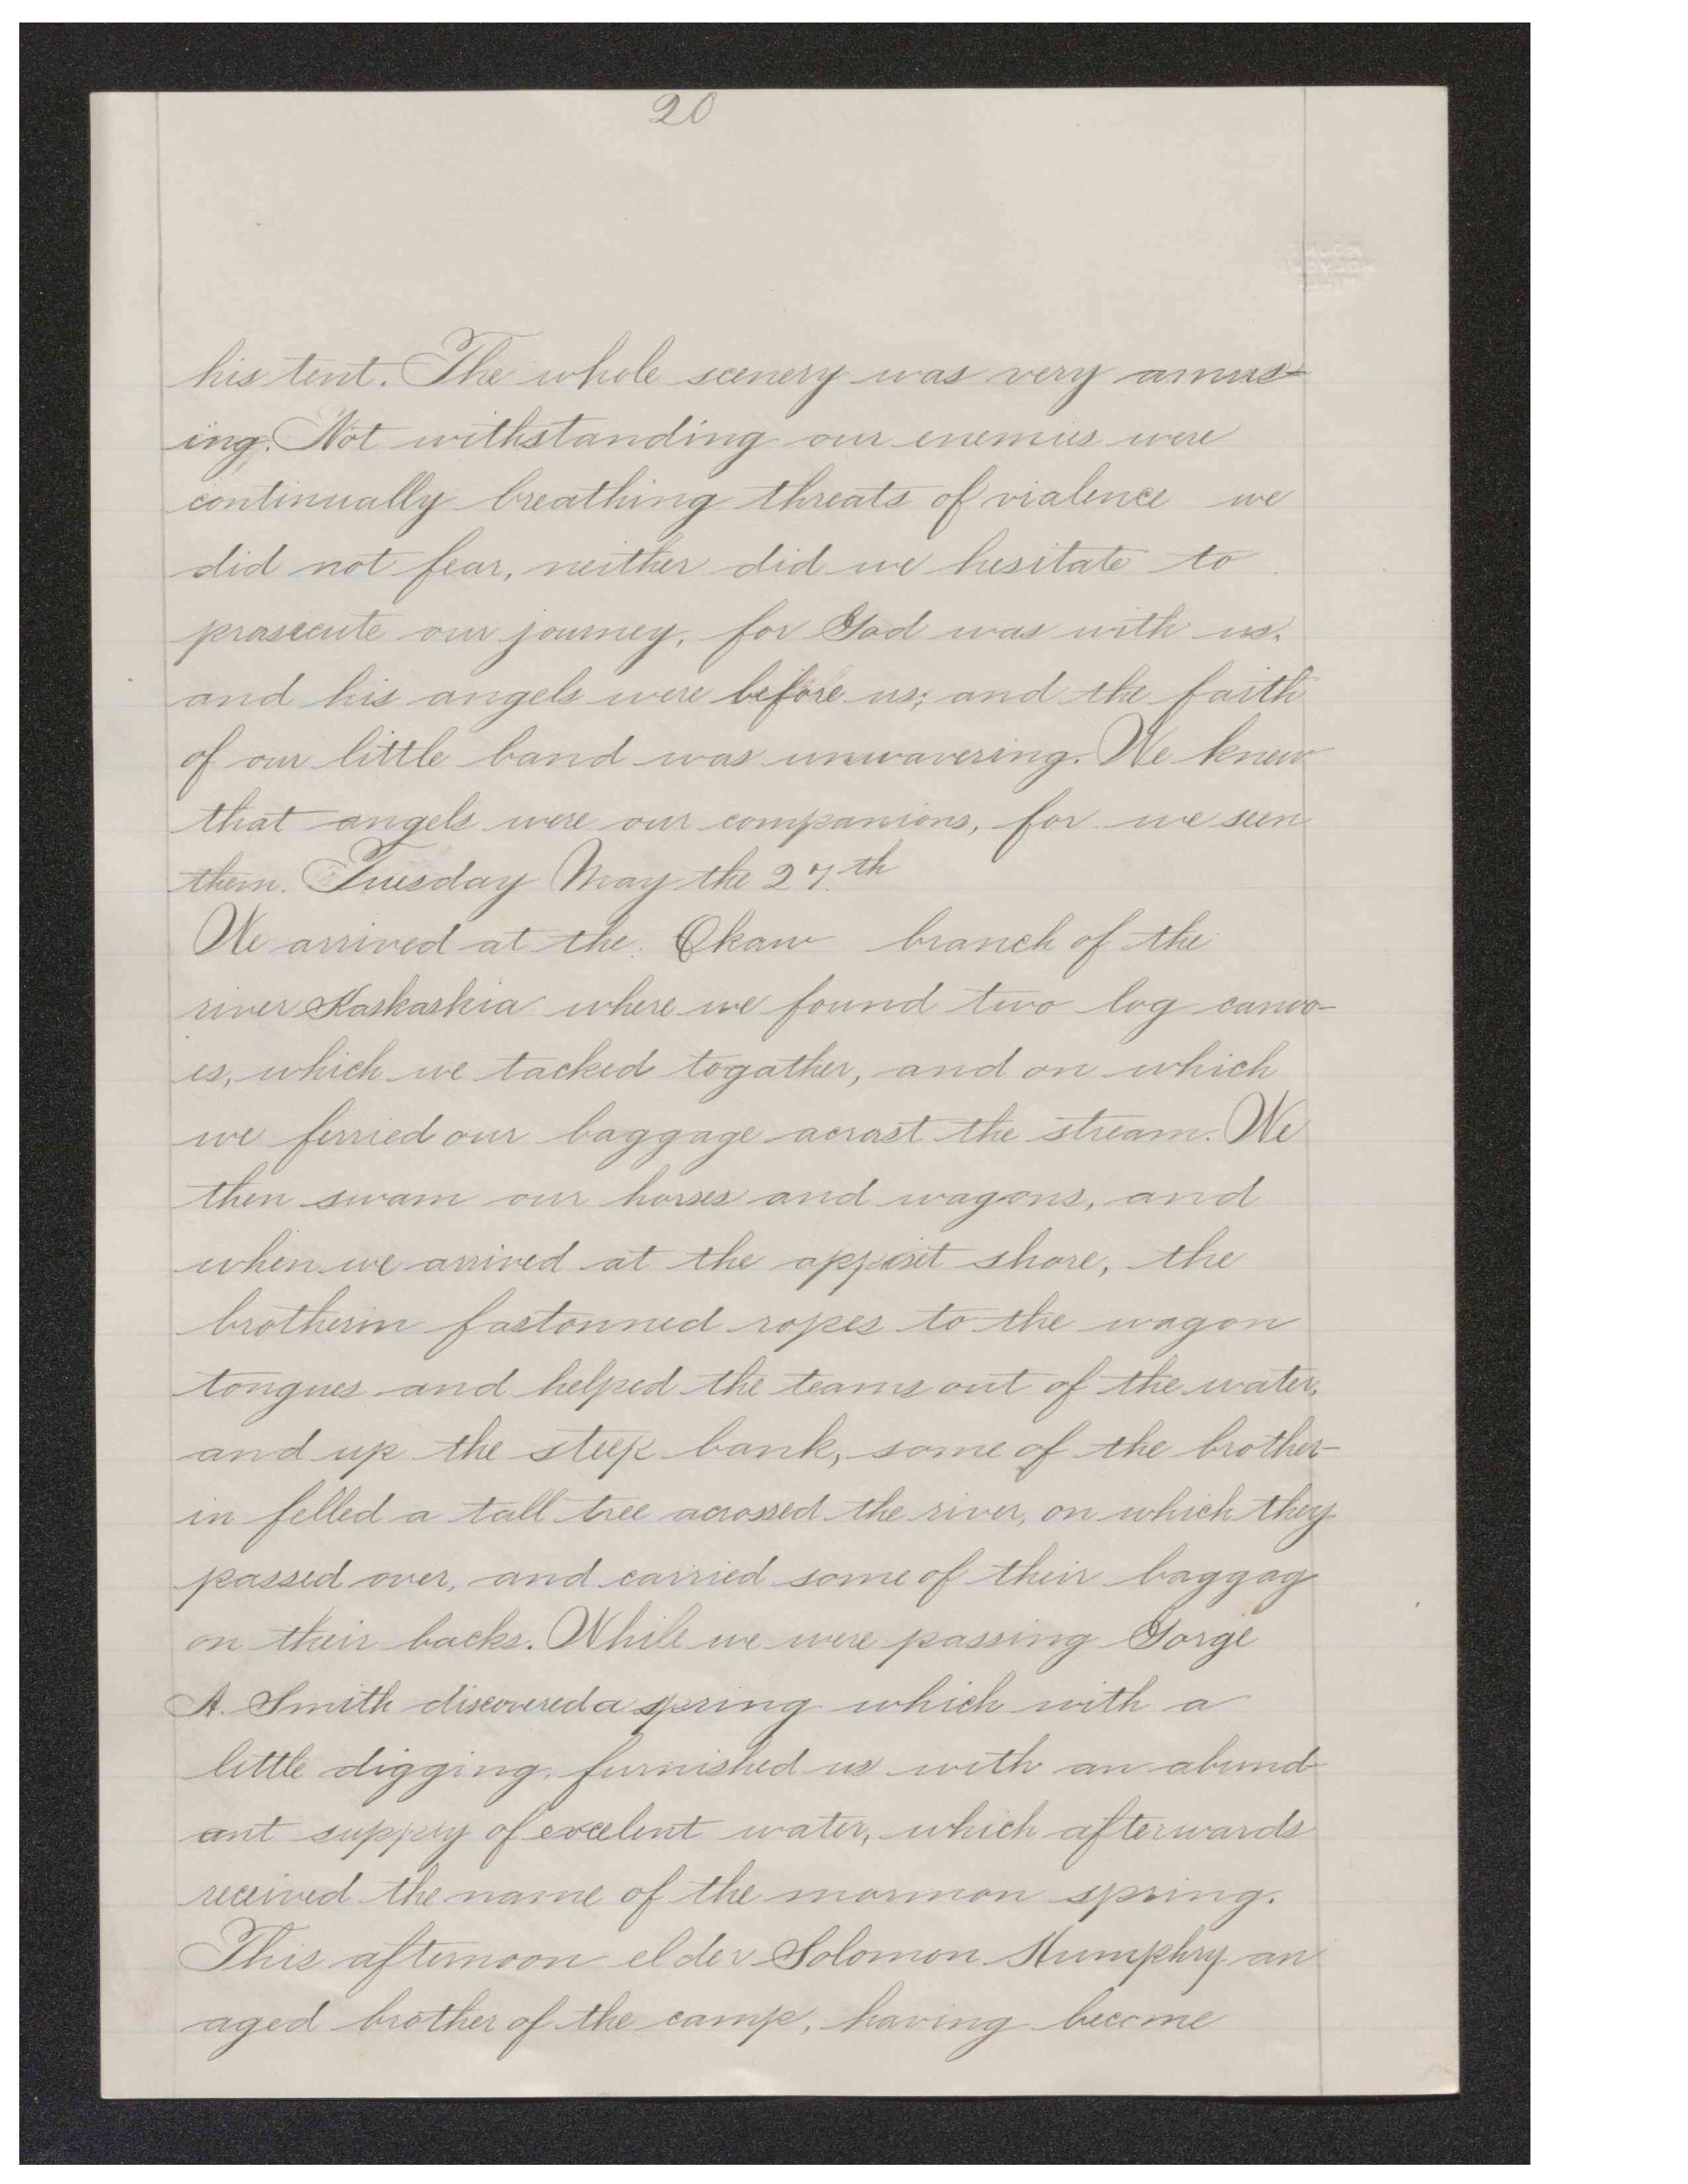 20
his tent. The whole scenery was very amus-
ing. Not withstanding our enemies were
continually breathing threats of vialence we
did not fear, neither did we hesitate to
prosecute our journey, for God was with us.
and his angels were before us; and the faith
of our little band was unwavering. We knew
that angels were our companions, for we seen
them. Tuesday May the 27.th
We arrived at the. Okaw branch of the
river Kaskaskia where we found two log canoo-
es, which we tacked togather, and on which
we ferried our baggage acrost the stream. We
then swam our horses and wagons, and
when we arrived at the apposit shore, the
brotherin fastonned ropes to the wagon
tongues and helped the teams out of the water,
and up the steep bank, some of the brother-
in felled a tall tree acrossed the river, on which they
passed over, and carried some of their baggag
on their backs. While we were passing Gorge
A. Smith discovered a spring which with a
little digging, furnished us with an abund-
ant supply of excelent water, which afterwards
received the name of the mormon spring.
This afternoon elder Solomon Humphry an
aged brother of the camp, having become